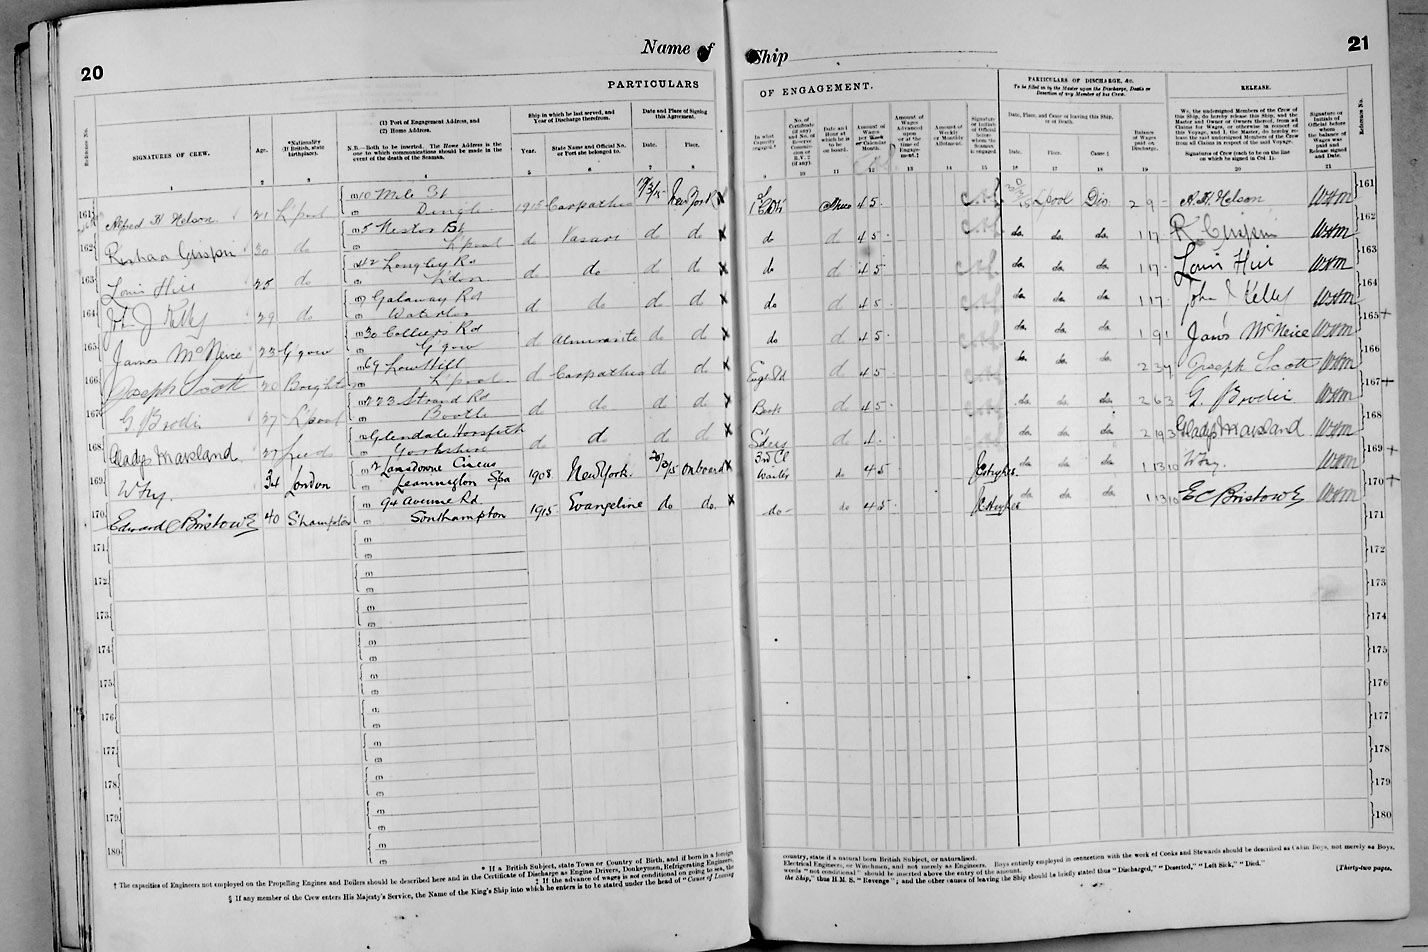 20
Name of
PARTICULARS
Reference No.
SIGNATURES OF CREW.
Age.
*Nationality
(If British, state
birthplace).
(1) Port of Engagement Address, and
(2) Home Address.
N.B.—Both to be inserted. The Home Address is the
one to which communications should be made in the
event of the death of the Seaman.
Ship in which he last served, and
Year of Discharge therefrom.
Year.
State Name and Official No.
or Port she belonged to.
Date and Place of Signing
this Agreement.
Date.
Place.
1 2 3 4 5 6 7 8
161 Alfred H Nelson 21 L'pool (1) 10 Mile St
(2) Dingle 1915 Carpathia New York X
162 Crispin 30 do (1) 5 Nestor St
(2) L'pool d Vasari d d X
163 Louis Hill 28 do (1) 42 Longley Rd
(2) d do d d X
164 John J Kelly 29 do (1) 7 Galaway Rd
(2) Waterloo d do d d X
165 James McNeice 23 G'gow (1) 30 Colliers Rd
(2) G'gow d d d X
166 Joseph Scott 20 (1) 69 Low Hill
(2) L'pool d Carpathia d d X
167 G Brodie 27 L'pool (1) 273 Strand Rd
(2) Bootle d do d d X
168 Gladys Marsland 27 (1) Glendale Horsforth
(2) Yorkshire d do d d X
169 W Fry. 34 London (1) 2 Lansdowne Circus
(2) Leamington Spa 1908 New York. on board X
170 Edward C Bristowe 40 S'hampton (1) 94 Avenue Rd
(2) Southampton 1915 Evangeline do do. X
171 (1)
(2)
172 (1)
(2)
173 (1)
(2)
174 (1)
(2)
175 (1)
(2)
176 (1)
(2)
177 (1)
(2)
178 (1)
(2)
179 (1)
(2)
180 (1)
(2)
* If a British Subject, state Town or Country of Birth, and if born in a foreign
† The capacities of Engineers not employed on the Propelling Engines and Boilers should be described here and in the Certificate of Discharge as Engine Drivers, Donkeymen, Refrigerating Engineers,
‡ If the advance of wages is not conditional on going to sea, the
§ If any member of the Crew enters His Majesty's Service, the Name of the King's Ship into which he enters is to be stated under the head of "Cause of Leaving
Ship
21
OF ENGAGEMENT.
PARTICULARS OF DISCHARGE, &c.
To be filled in by the Master upon the Discharge, Death or
Desertion of any Member of his Crew.
RELEASE.
In what
Capacity
engaged.†
No. of
Certificate
(if any)
and No. of
Reserve
Commis-
sion or
R.V. 2
(if any).
Date and
Hour at
which he is
to be
on board.
Amount of
Wages
per Week
or Calendar
Month.
Amount of
Wages
Advanced
upon
or at the
time of
Engage-
ment.‡
Amount of
Weekly
or Monthly
Allotment.
Signature
or Initials
of Official
before
whom the
Seaman is
engaged.
Date, Place, and Cause of leaving this Ship,
or of Death.
Date.
Place.
Cause.§
Balance of
Wages
paid on
Discharge.
We, the undersigned Members of the Crew of
this Ship, do hereby release this Ship, and the
Master and Owner or Owners thereof, from all
Claims for Wages, or otherwise in respect of
this Voyage, and I, the Master, do hereby re-
lease the undersigned Members of the Crew
from all claims in respect of the said Voyage.
Signatures of Crew (each to be on the line
on which he signed in Col. 1).
Signature or
Initials of
Official before
whom
the balance of
Wages was
paid and
Release signed
and Date.
Reference No.
9 10 11 12 13 14 15 16 17 18 19 20 21
45 L'pool Dis 2 9 - A. H. Nelson 161
do d 45 do. do. do. 1 17 - R Crispin 162
do d 45 do. do. do. 1 17 - Louis Hill 163
do d 45 do. do. do. 1 17 - John J Kelly 164
do d 45 do. do. do. 1 9 1 James McNeice 165 +
d 45 do. do. do. Joseph Scott 166
d 45 do. do. do. 2 6 3 G. Brodie 167 +
d do. do. do. Gladys Marsland 168
3rd Cl
Waiter do 45 do. do. do. 1 13 10 W Fry. 169 +
do - do 45 - do. do. do. 1 13 10 E C Bristowe 170 +
171
172
173
174
175
176
177
178
179
180
country, state if a natural born British Subject, or naturalised.
Electrical Engineers, or Winchmen, and not merely as Engineers. Boys entirely employed in connection with the work of Cooks and Stewards should be described as Cabin Boys, not merely as Boys.
words "not conditional" should be inserted above the entry of the amount.
the Ship," thus H.M.S. "Revenge"; and the other causes of leaving the Ship should be briefly stated thus "Discharged," "Deserted," "Left Sick," "Died."
[Thirty-two pages.